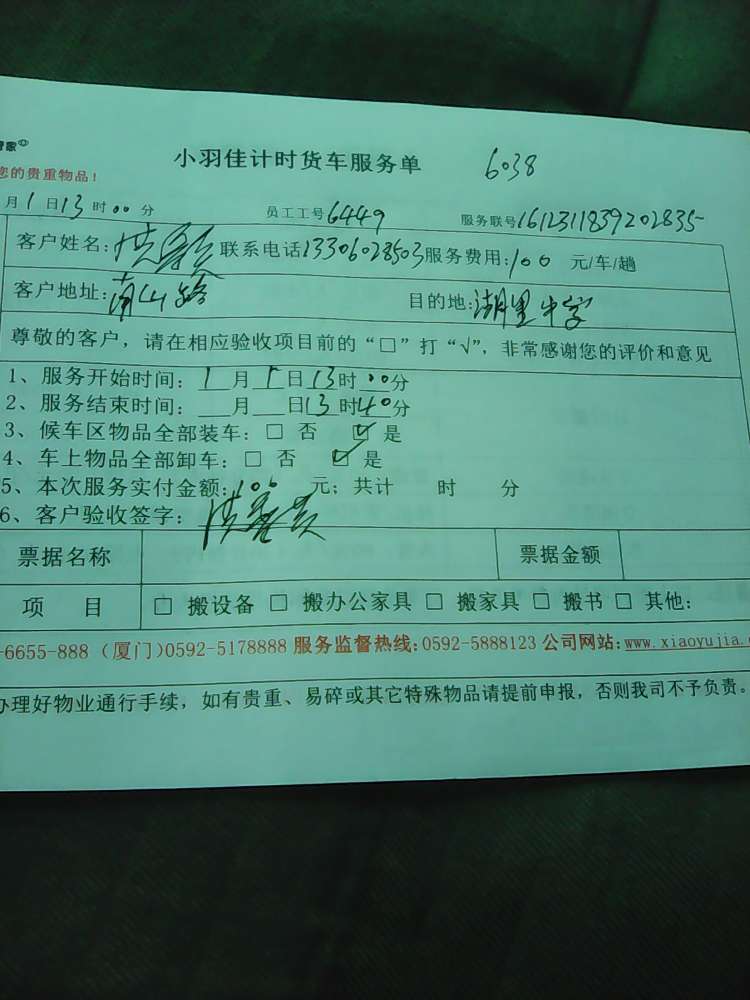 管家
小羽佳计时货车服务单 6038
您的贵重物品！
月1日13时00分 员工工号6449 服务联号1612311839202835
客户姓名：洪 联系电话13306028503服务费用：100 元/车/趟
客户地址：南山路 目的地：湖里中学
尊敬的客户，请在相应验收项目前的“□”打“√”，非常感谢您的评价和意见
1、服务开始时间：1月1日13时00分
2、服务结束时间：__月__日13时40分
3、候车区物品全部装车：□ 否 ☑ 是
4、车上物品全部卸车：□ 否 ☑ 是
5、本次服务实付金额：100 元；共计 时 分
6、客户验收签字：洪
票据名称 票据金额
项 目 □ 搬设备 □ 搬办公家具 □ 搬家具 □ 搬书 □ 其他：
-6655-888 (厦门)0592-5178888 服务监督热线：0592-5888123 公司网站：www.xiaoyujia.
办理好物业通行手续，如有贵重、易碎或其它特殊物品请提前申报，否则我司不予负责。